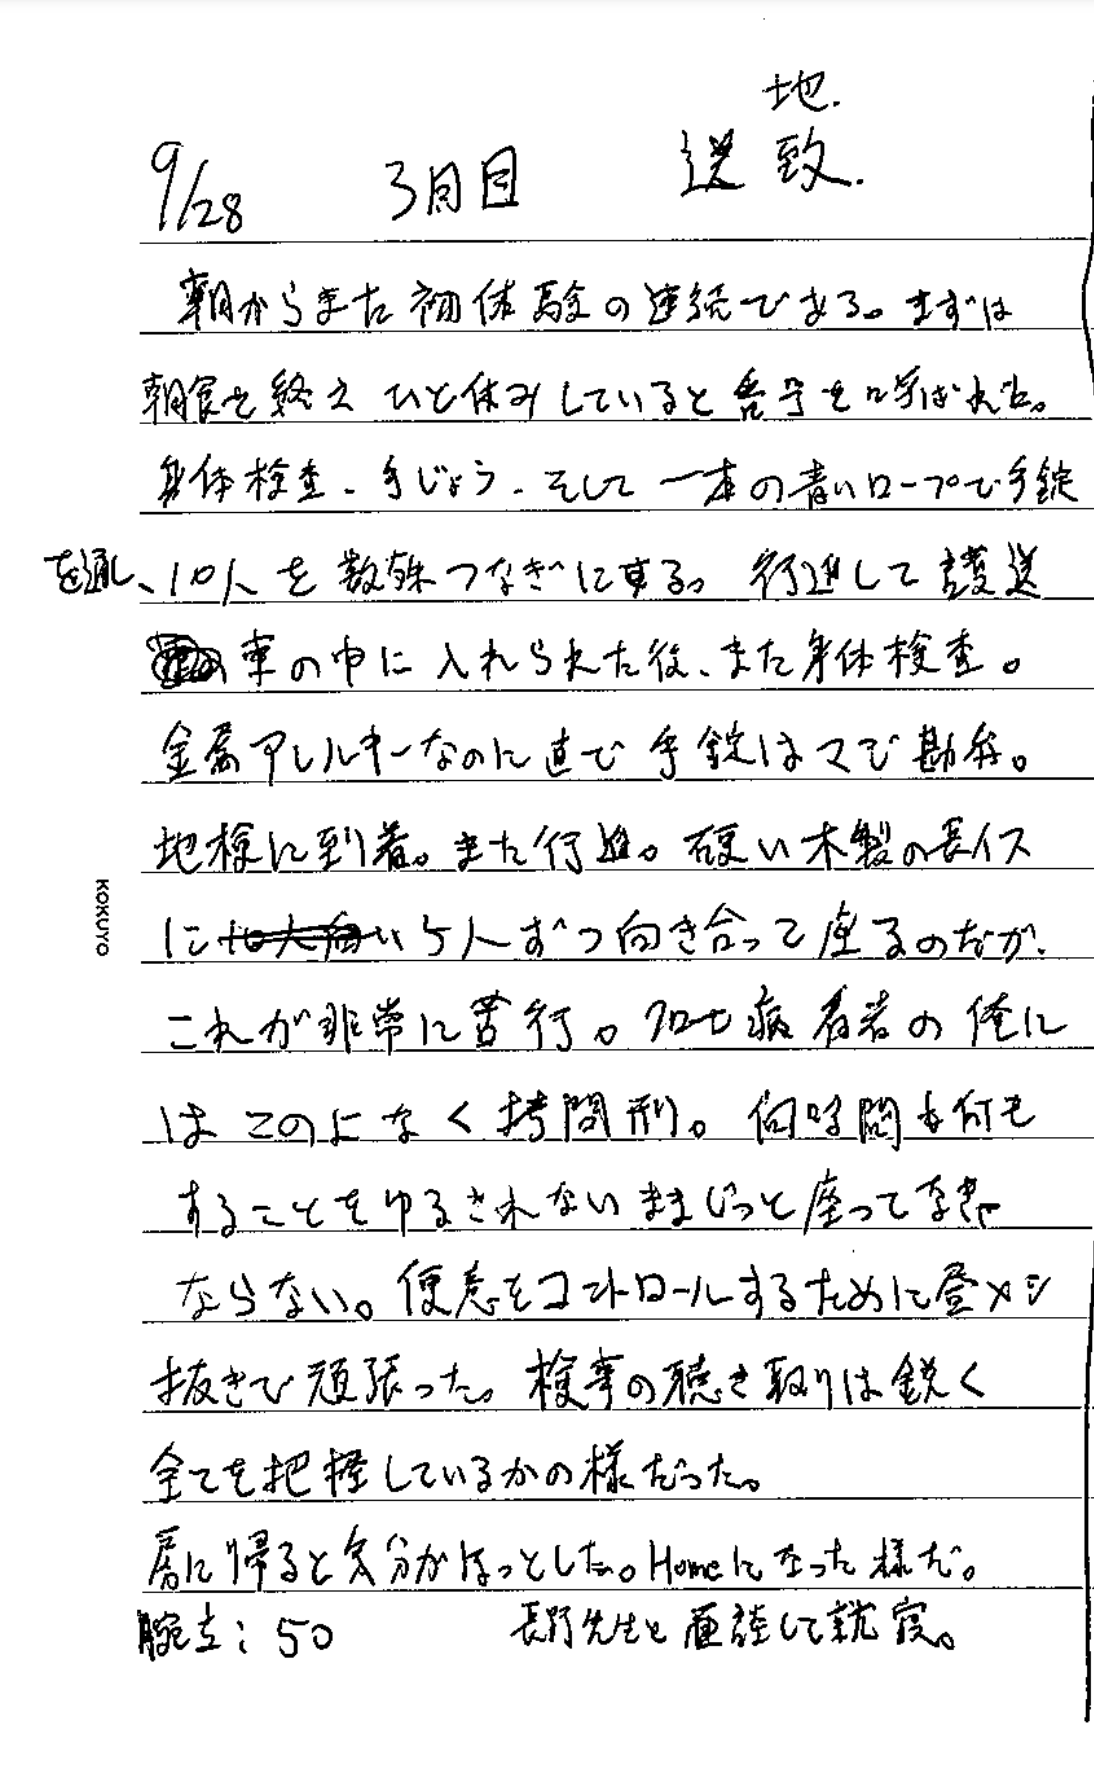 地.
9/28 3日目 送致.
朝からまた初体験の連続である。まずは
朝食を終え ひと休みしていると番号を呼ばれた。
身体検査、手じょう、そして 一本の青いロープで手錠
を通し、10人を数珠つなぎにする。行進して護送
車の中に入れられた後、また身体検査。
金属アレルギーなのに直で手錠はマで勘弁。
地検に到着。また行進。硬い木製の長イス
に 5人ずつ向き合って座るのだが、
これが非常に苦行。クローン病患者の俺に
はこのよになく拷問刑。何時間も何も
することをゆるされないままじっと座ってなきゃ
ならない。便意をコントロールするために昼メシ
抜きで頑張った。検事の聴き取りは鋭く
全てを把握しているかの様だった。
房に帰ると気分がほっとした。Homeになった様だ。
腕立:50 長野先生と面談して就寝。
KOKUYO